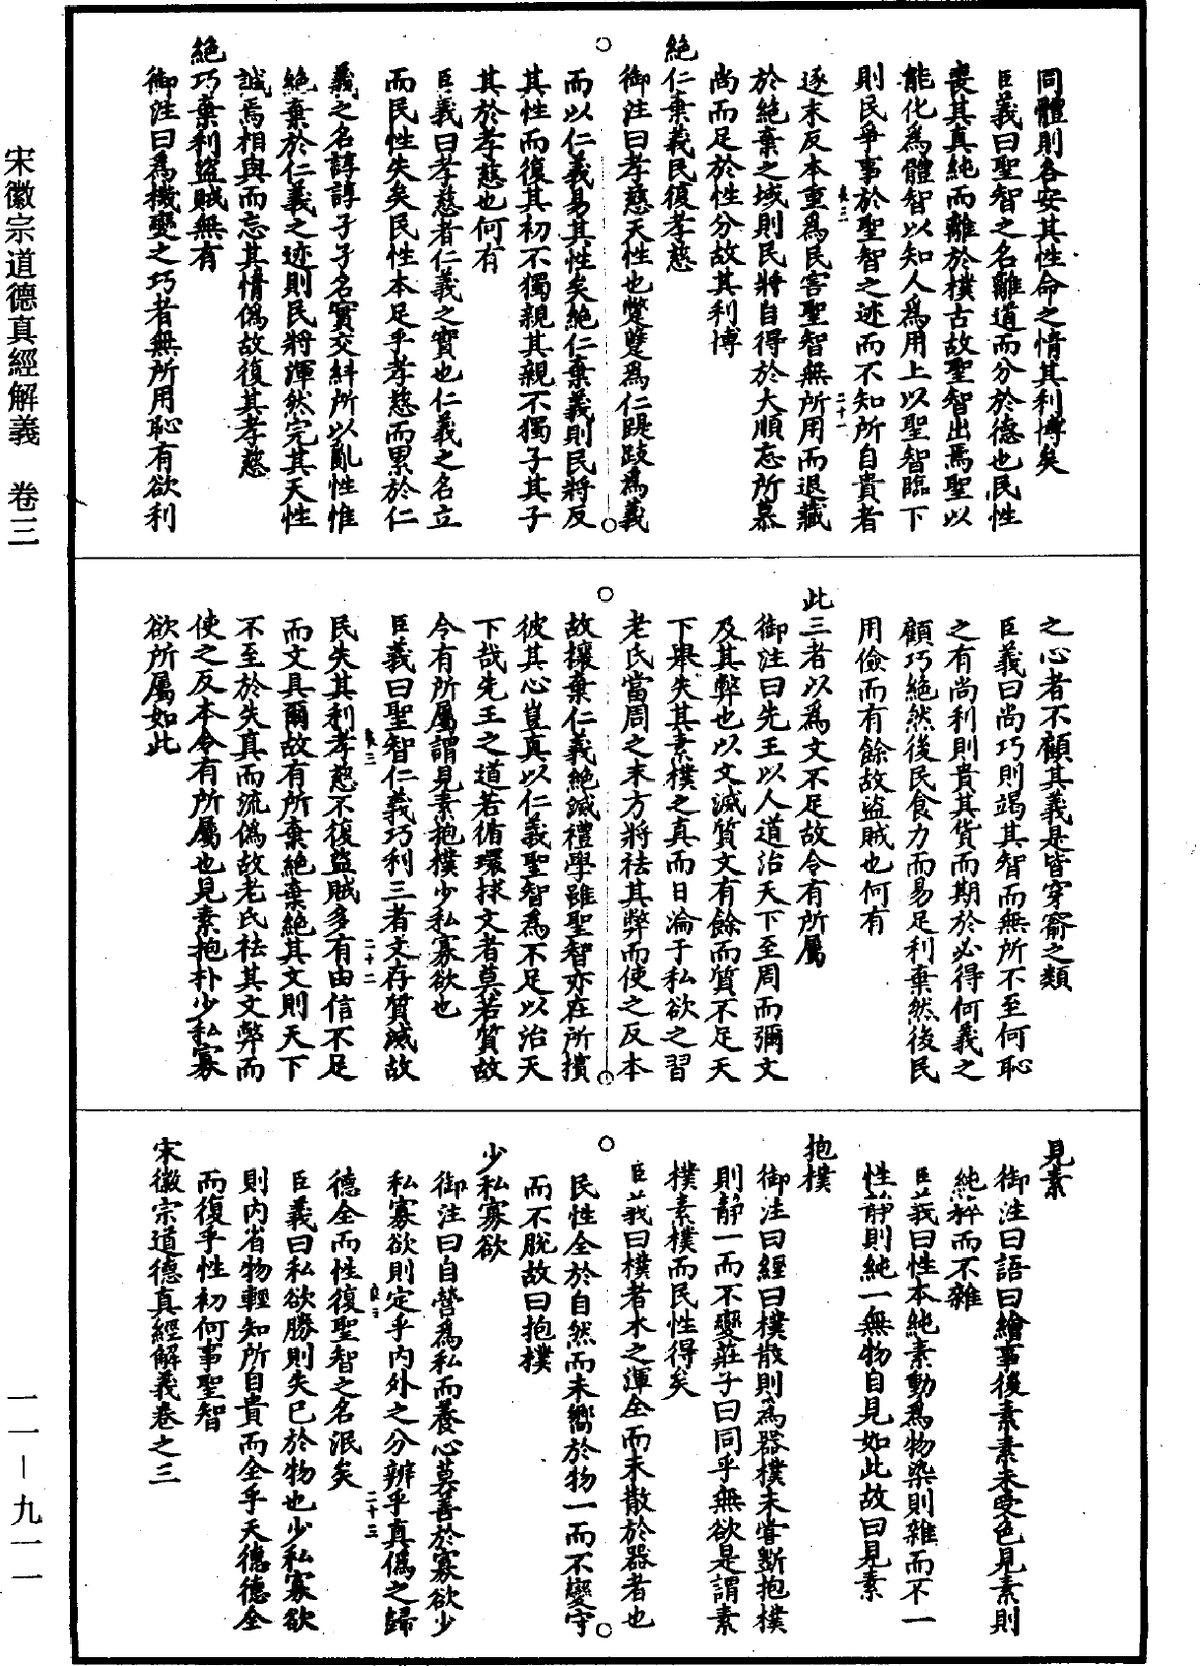 同體則各安其性命之情其利博矣
臣義曰聖智之名離道而分於德也民性
喪其真純而離於樸古故聖智出焉聖以
能化為體智以知人為用上以聖智臨下
則民爭事於聖智之迹而不知所自貴者
逐末反本重為民害聖智無所用而退藏
於絕棄之域則民將自得於大順忘所慕
尚而足於性分故其利博
絕仁棄義民復孝慈
御注曰孝慈天性也蹩躠為仁踶跂為義
而以仁義易其性矣絕仁棄義則民將反
其性而復其初不獨親其親不獨子其子
其於孝慈也何有
臣義曰孝慈者仁義之實也仁義之名立
而民性失矣民性本足乎孝慈而累於仁
義之名諄諄孑孑名實交糾所以亂性惟
絕棄於仁義之迹則民將渾然完其天性
誠焉相與而忘其情偽故復其孝慈
絕巧棄利盜賊無有
御注曰為機變之巧者無所用恥有欲利
之心者不顧其義是皆穿窬之類
臣義曰尚巧則竭其智而無所不至何恥
之有尚利則貴其貨而期於必得何義之
顧巧絕然後民食力而易足利棄然後民
用儉而有餘故盜賊也何有
此三者以為文不足故令有所屬
御注曰先王以人道治天下至周而彌文
及其弊也以文滅質文有餘而質不足天
下舉失其素樸之真而日淪于私欲之習
老氏當周之末方將祛其弊而使之反本
故攘棄仁義絕滅禮學雖聖智亦在所擯
彼其心豈真以仁義聖智為不足以治天
下哉先王之道若循環捄文者莫若質故
令有所屬謂見素抱樸少私寡欲也
臣義曰聖智仁義巧利三者文存質滅故
民失其利孝慈不復盜賊多有由信不足
而文具爾故有所棄絕棄絕其文則天下
不至於失真而流偽故老氏祛其文弊而
使之反本令有所屬也見素抱朴少私寡
欲所屬如此
見素
御注曰語曰繪事後素素未受色見素則
純粹而不雜
臣義曰性本純素動為物染則雜而不一
性靜則純一無物自見如此故曰見素
抱樸
御注曰經曰樸散則為器樸未嘗斲抱樸
則靜一而不變莊子曰同乎無欲是謂素
樸素樸而民性得矣
臣義曰樸者木之渾全而未散於器者也
民性全於自然而未嚮於物一而不變守
而不脫故曰抱樸
少私寡欲
御注曰自營為私而養心莫善於寡欲少
私寡欲則定乎內外之分辨乎真偽之歸
德全而性復聖智之名泯矣
臣義曰私欲勝則失己於物也少私寡欲
則內省物輕知所自貴而全乎天德德全
而復乎性初何事聖智
宋徽宗道德真經解義卷之三
宋徽宗道德真經解義 卷三
一一－九一一